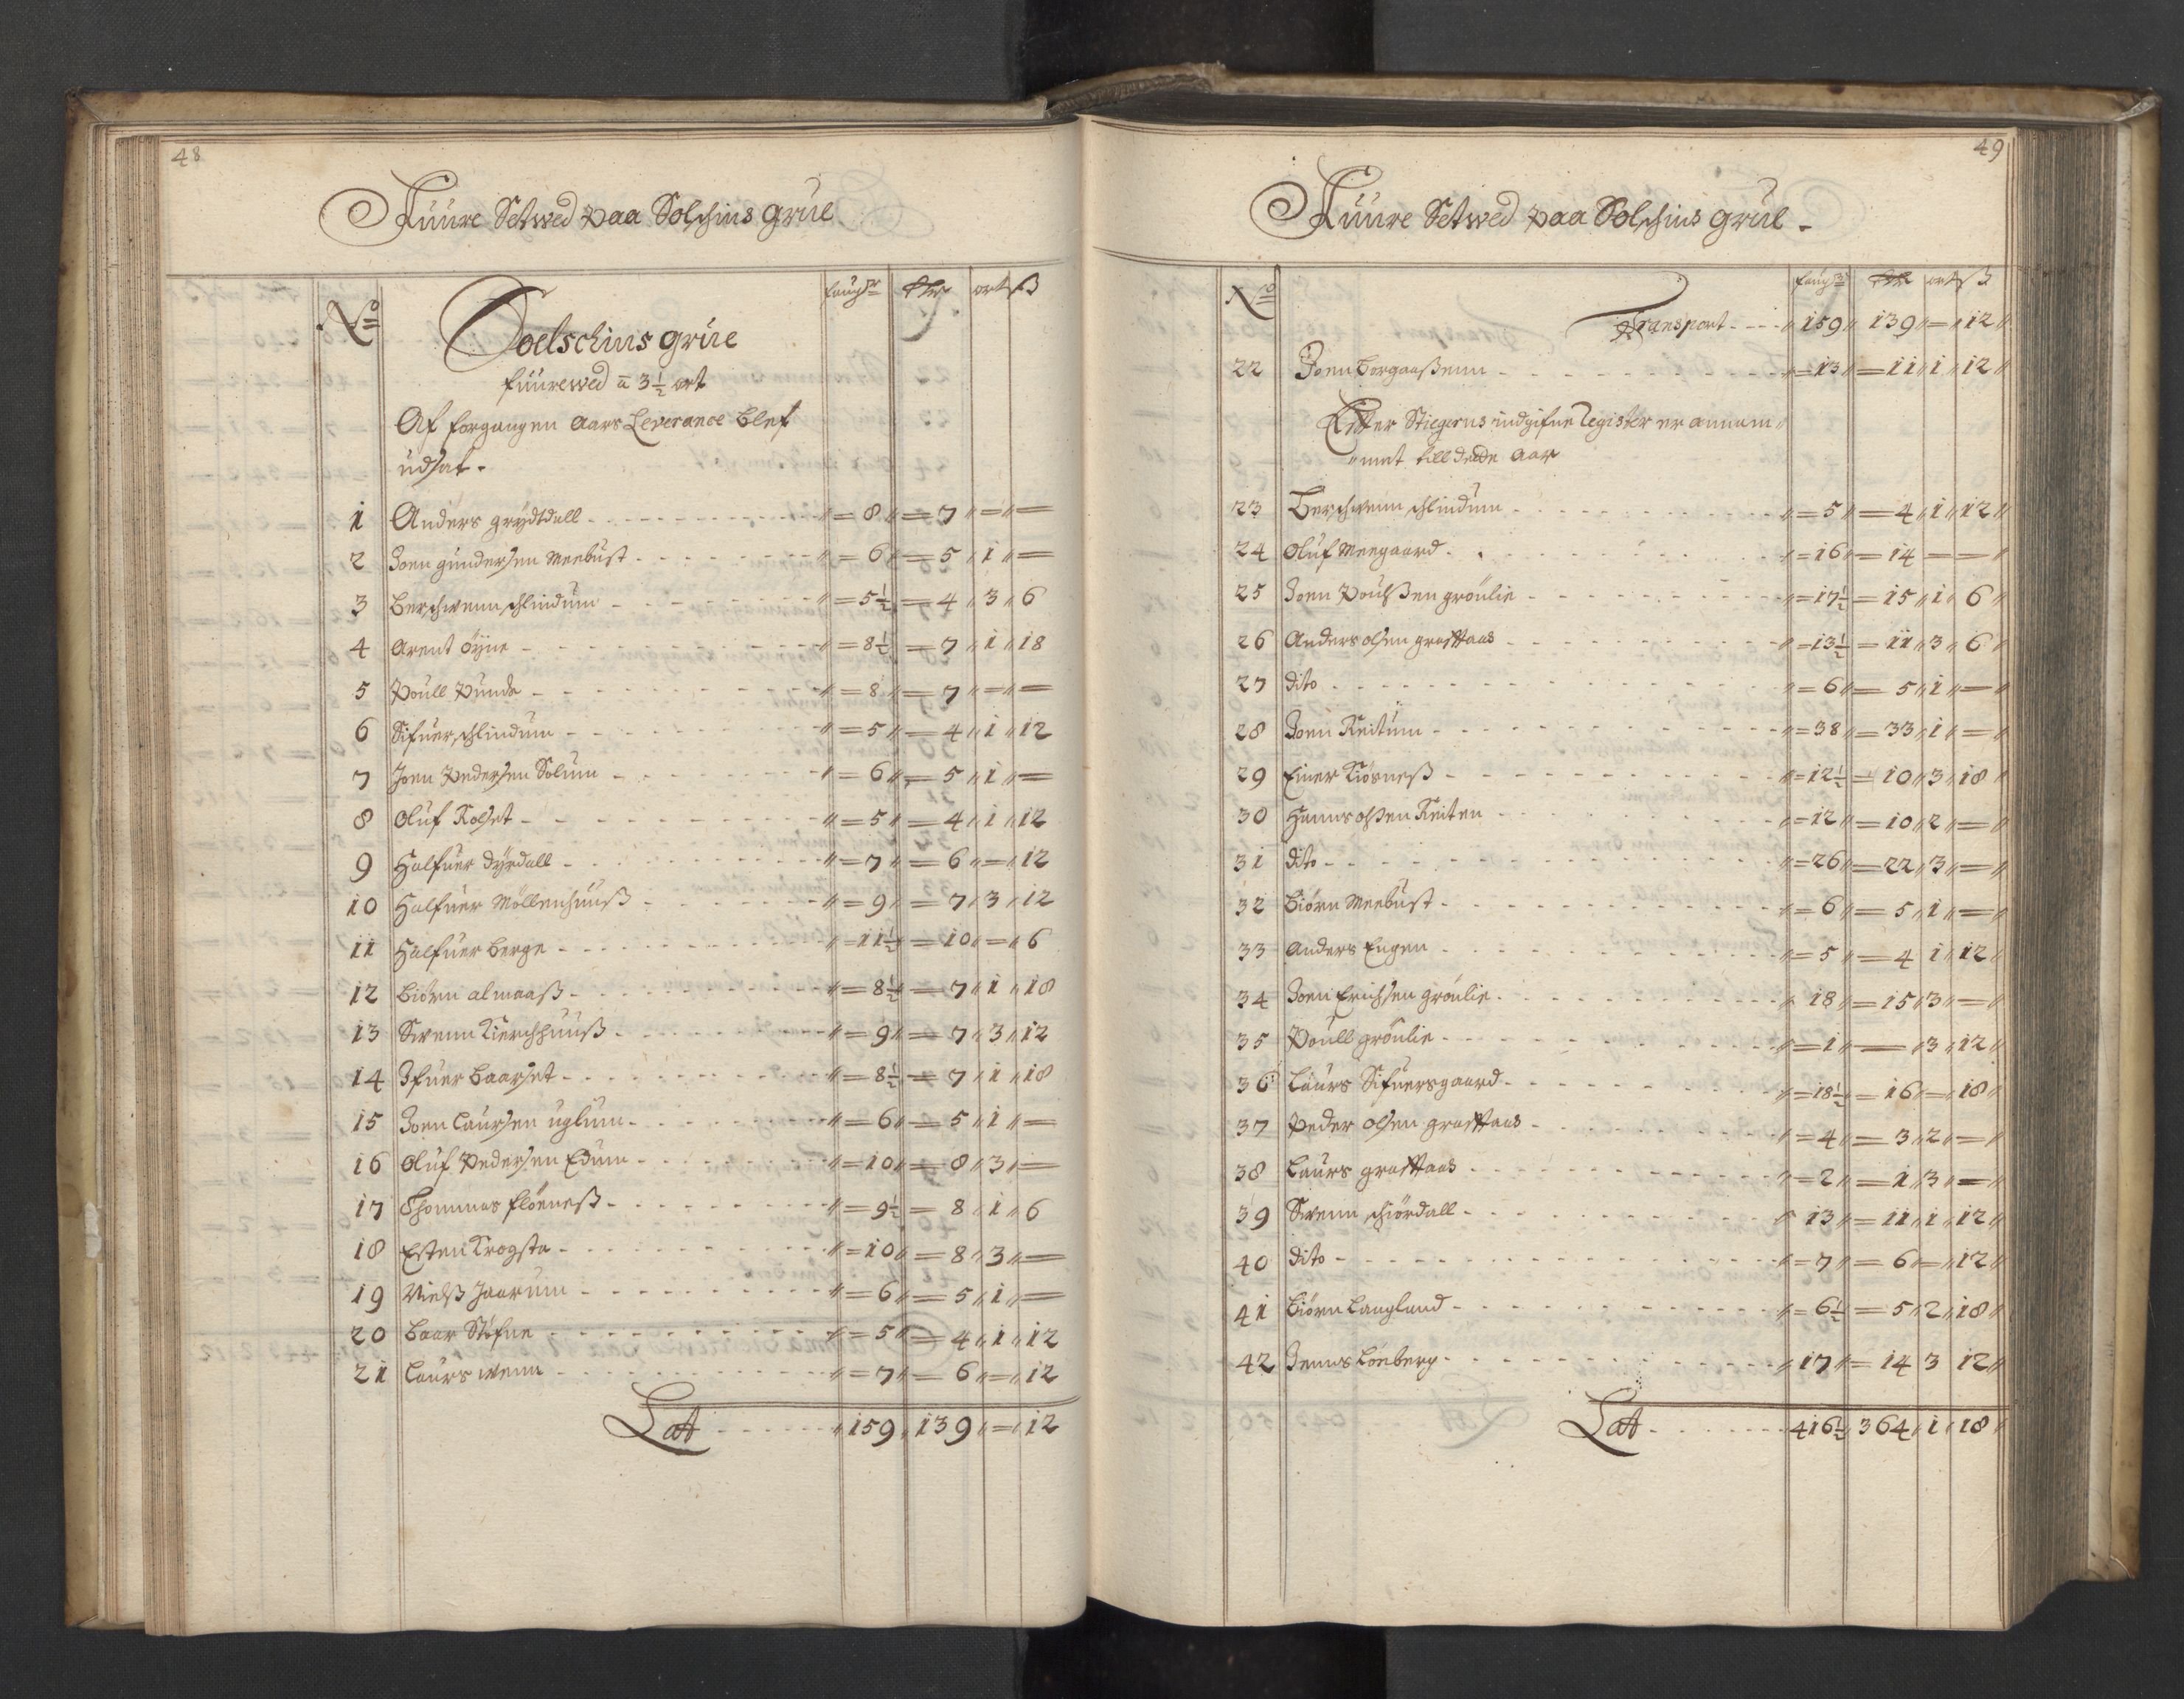 48
Fuure Setwed paa Solschins grue
No
faugr
Rdr
ort
ß
Soelschins grue
fuurewed a 3½ ort
Af forgangen Aars Leverance blef
udsat.
1 Anders grydtdall - - - 8 = 7 = =
2 Joen gundersen Meebust - - - 6 = 5 1 =
3 Berschwenn schlindum - - - 5½ = 4 3 6
4 Arent öyne - - - 8½ = 7 1 18
5 Poull Punde - - - 8 = 7 = =
6 Sifuer schlindum - - - 5 = 4 1 12
7 Joen Pedersen Solum - - - 6 = 5 1 =
8 Oluf Kolset - - - 5 = 4 1 12
9 Halfuer dyrdall - - - 7 = 6 = 12
10 Halfuer Möllenhuuß - - - 9 = 7 3 12
11 Halfuer berge - - - 11½ = 10 = 6
12 Biörn almaaß - - - 8½ = 7 1 18
13 Swenn Kierchhuuß - - - 9 = 7 3 12
14 Ifuer Baarset - - - 8½ = 7 1 18
15 Joen Laursen uglum - - - 6 = 5 1 =
16 Oluf Pedersen Edum - - - 10 = 8 3 =
17 Thommas flöeneß - - - 9½ = 8 1 6
18 Esten Krogsta - - - 10 = 8 3 =
19 Nielß Jaarum - - - 6 = 5 1 =
20 Baar Stöfne - - - 5 = 4 1 12
21 Laurs wenn - - - 7 = 6 = 12
Lat - - - 159 139 = 12
49
Fuure Setwed paa Solschins grue.
No
faugr
Rdr
ort
ß
Transport - - - 159 139 = 12
22 Joen Borgaaßenn - - - 13 = 11 1 12
Efter Stiegerns indgifne Register er annam
met till dette Aar
23 Berschwenn schlindum - - - 5 = 4 1 12
24 Oluf Meegaard - - - 16 = 14 = =
25 Joen Poulßen gröulie - - - 17½ = 15 1 6
26 Anders olsen graftaas - - - 13½ = 11 3 6
27 dito - - - 6 = 5 1 =
28 Joen Reitum - - - 38 = 33 1 =
29 Einer Kiösneß - - - 12½ = 10 3 18
30 Hanns olßen Reiten - - - 12 = 10 2 =
31 dito - - - 26 = 22 3 =
32 Biörn Meebust - - - 6 = 5 1 =
33 Anders Engen - - - 5 = 4 1 12
34 Joen Erichsen gröulie - - - 18 = 15 3 =
35 Poull gröulie - - - 1 = 3 12
36 Laurs Sifuersgaard - - - 18½ = 16 = 18
37 Peder olsen graftaas - - - 4 = 3 2 =
38 Laurs graftaas - - - 2 = 1 3 =
39 Swenn schiördall - - - 13 = 11 1 12
40 dito - - - 7 = 6 = 12
41 Biörn Langland - - - 6½ = 5 2 18
42 Jenns Löeberg - - - 17 = 14 3 12
Lat - - - 416½ 364 1 18